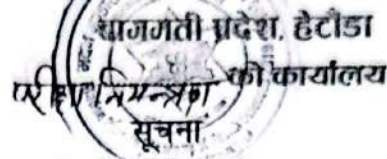 बागमती प्रदेश, हेटौंडा
परीक्षा नियन्त्रण को कार्यालय
सूचना